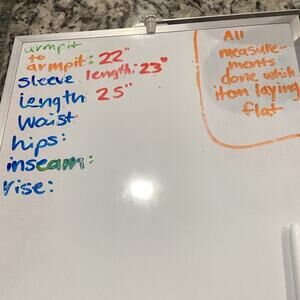 armpit
to
armpit: 22"
sleeve length: 23"
length 25"
Waist
hips:
inseam:
rise:
All
measure-
ments
done while
item laying
flat